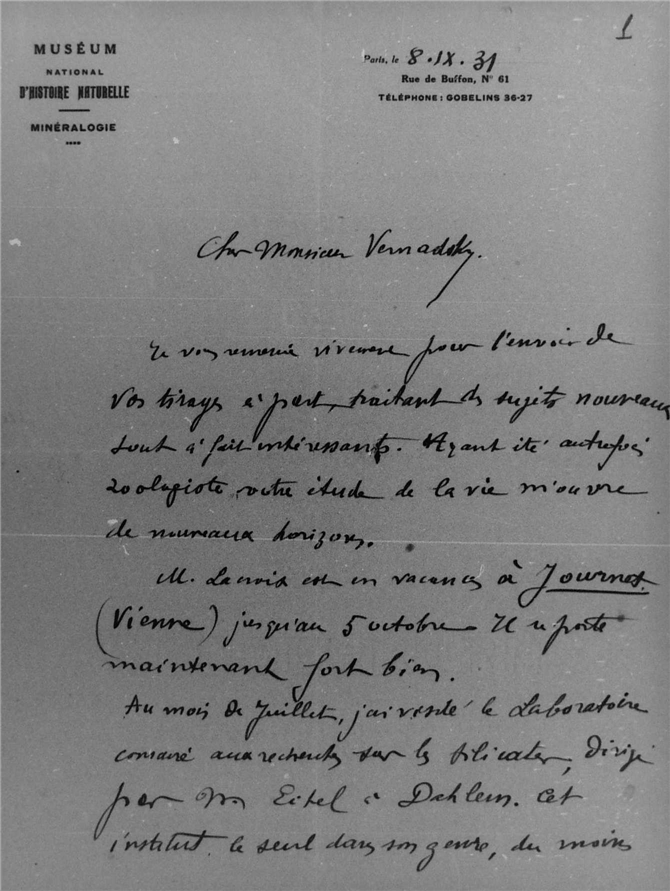 1
MUSÉUM
NATIONAL
D'HISTOIRE NATURELLE
MINÉRALOGIE
Paris, le 8.IX.31
Rue de Buffon, N° 61
TÉLÉPHONE : GOBELINS 36-27
Cher Monsieur Vernadsky.
Je vous remercie vivement pour l'envoi de
vos tirages à part, traitant des sujets nouveaux
tout à fait intéressants. Ayant été autrefois
zoologiste, votre étude de la vie m'ouvre
de nouveaux horizons.
M. Lacroix est en vacances à Journet
(Vienne) jusqu'au 5 octobre. Il se porte
maintenant fort bien.
Au mois de Juillet, j'ai visité le Laboratoire
consacré aux recherches sur les silicates, dirigé
par Mr Eitel à Dahlem. Cet
institut le seul dans son genre, du moins